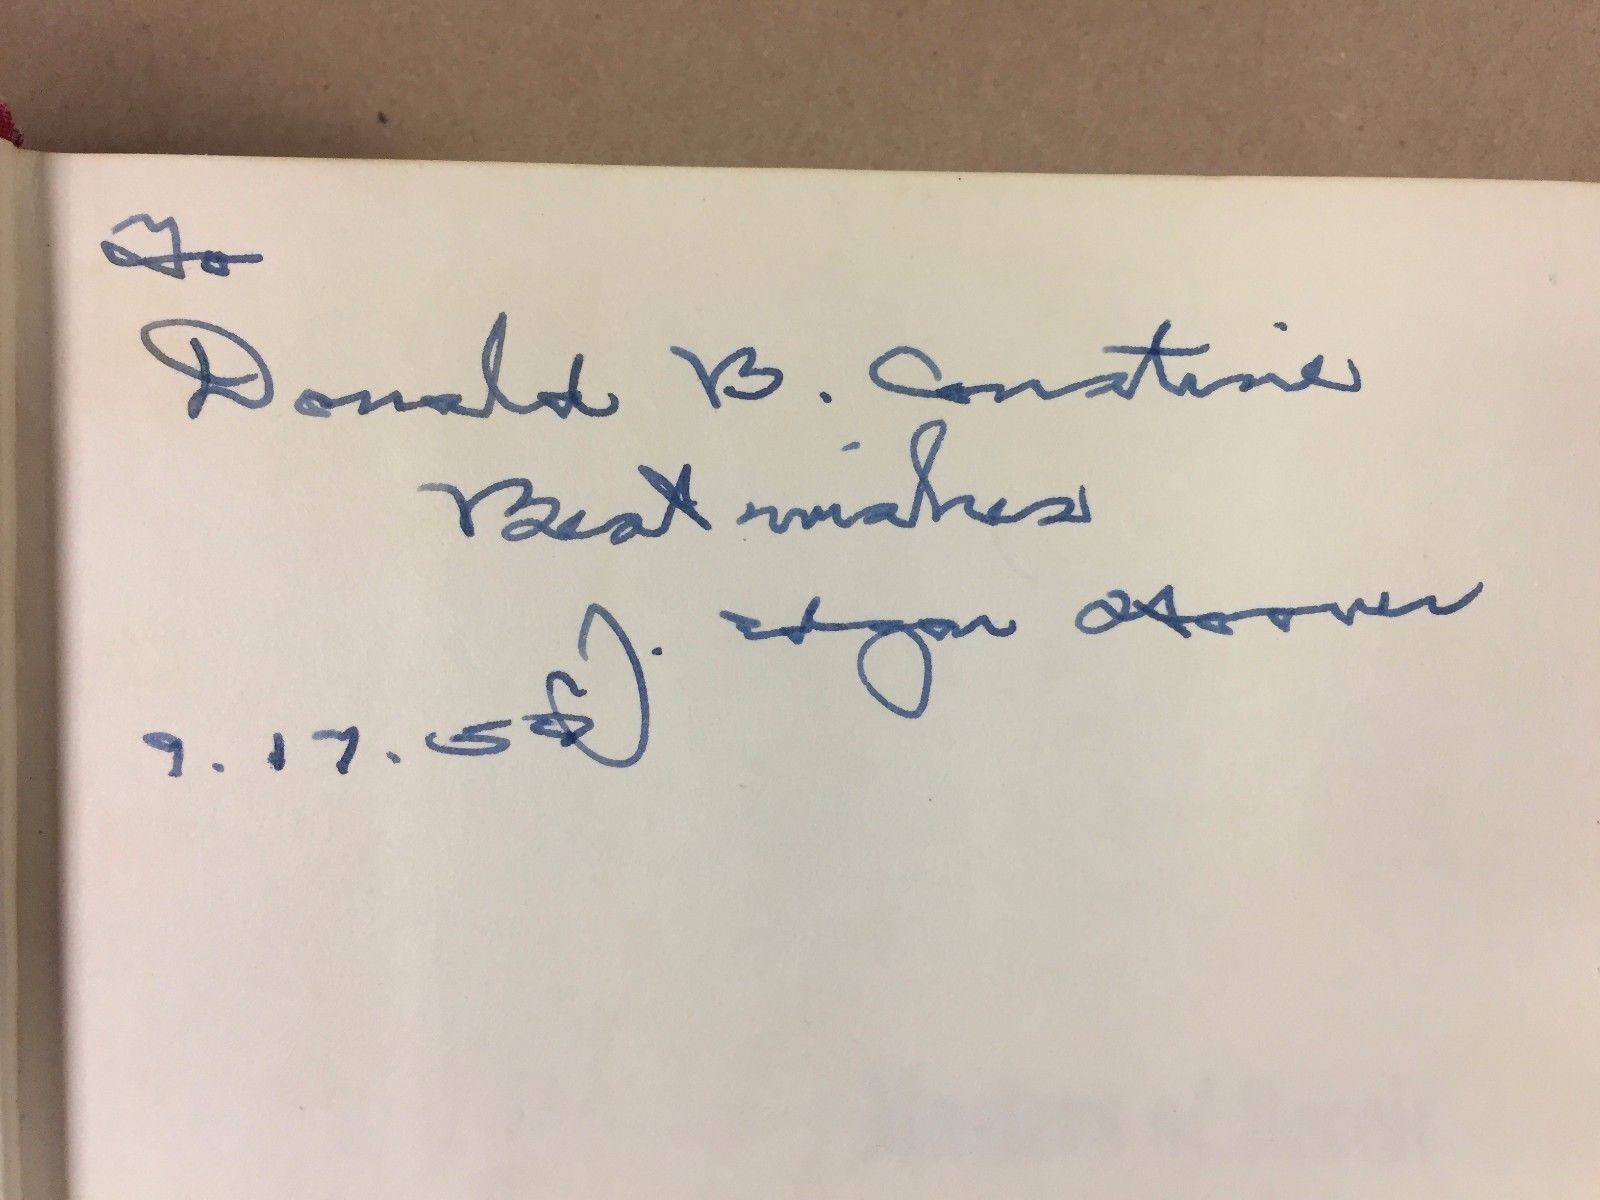 To
Donald B. Constine
Best wishes
J. Edgar Hoover
9.17.58